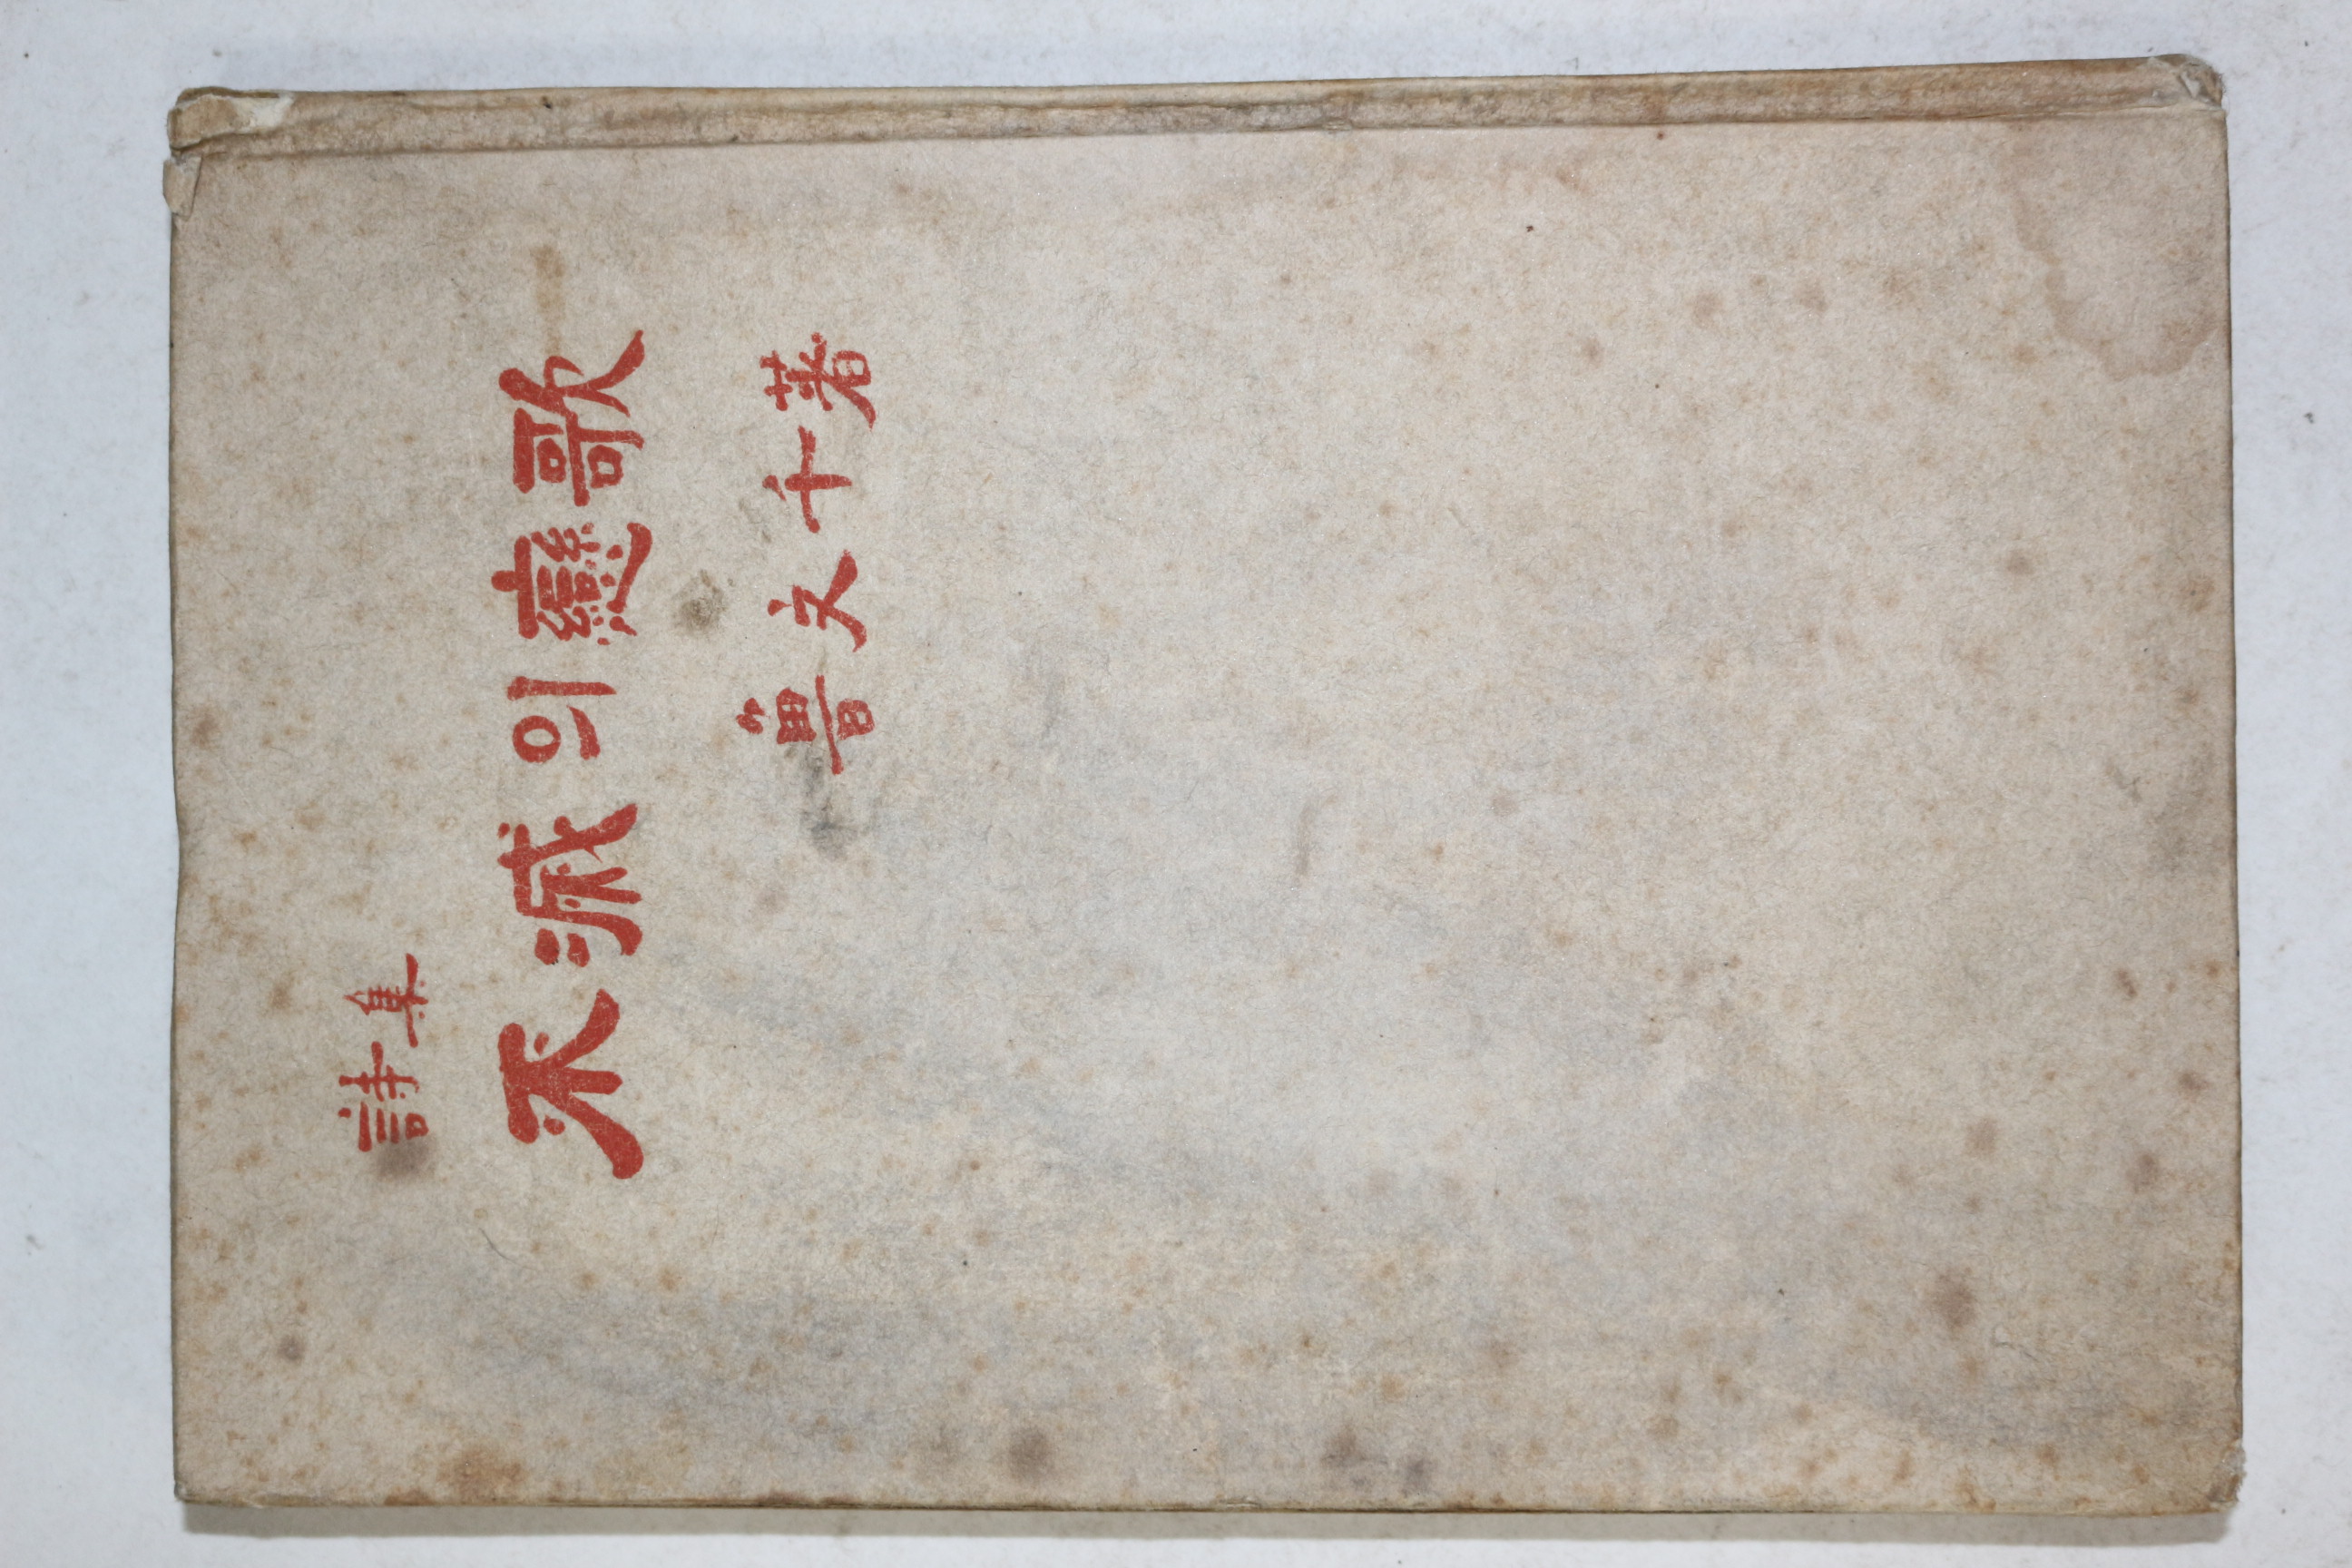 詩集
不滅의戀歌
魯文千著